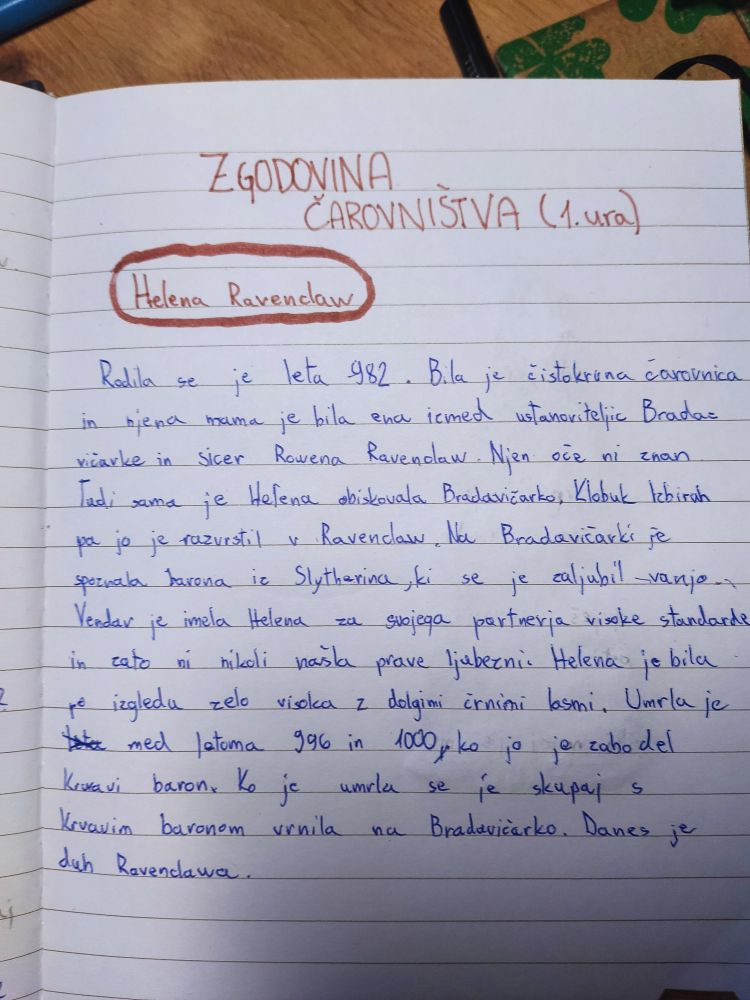 ZGODOVINA
ČAROVNIŠTVA (1. ura)
Helena Ravenclaw
Rodila se je leta 982. Bila je čistokrvna čarovnica
in njena mama je bila ena izmed ustanoviteljic Brada-
vičarke in sicer Rowena Ravenclaw. Njen oče ni znan
Tudi sama je Helena obiskovala Bradavičarko, Klobuk Izbirah
pa jo je razvrstil v Ravenclaw. Na Bradavičarki je
spoznala barona iz Slytherina, ki se je zaljubil vanjo.
Vendar je imela Helena za svojega partnerja visoke standarde
in zato ni nikoli našla prave ljubezni. Helena je bila
po izgledu zelo visoka z dolgimi črnimi lasmi. Umrla je
med letoma 996 in 1000, ko jo je zabodel
Krvavi baron. Ko je umrla se je skupaj s
Krvavim baronom vrnila na Bradavičarko. Danes je
duh Ravenclawa.